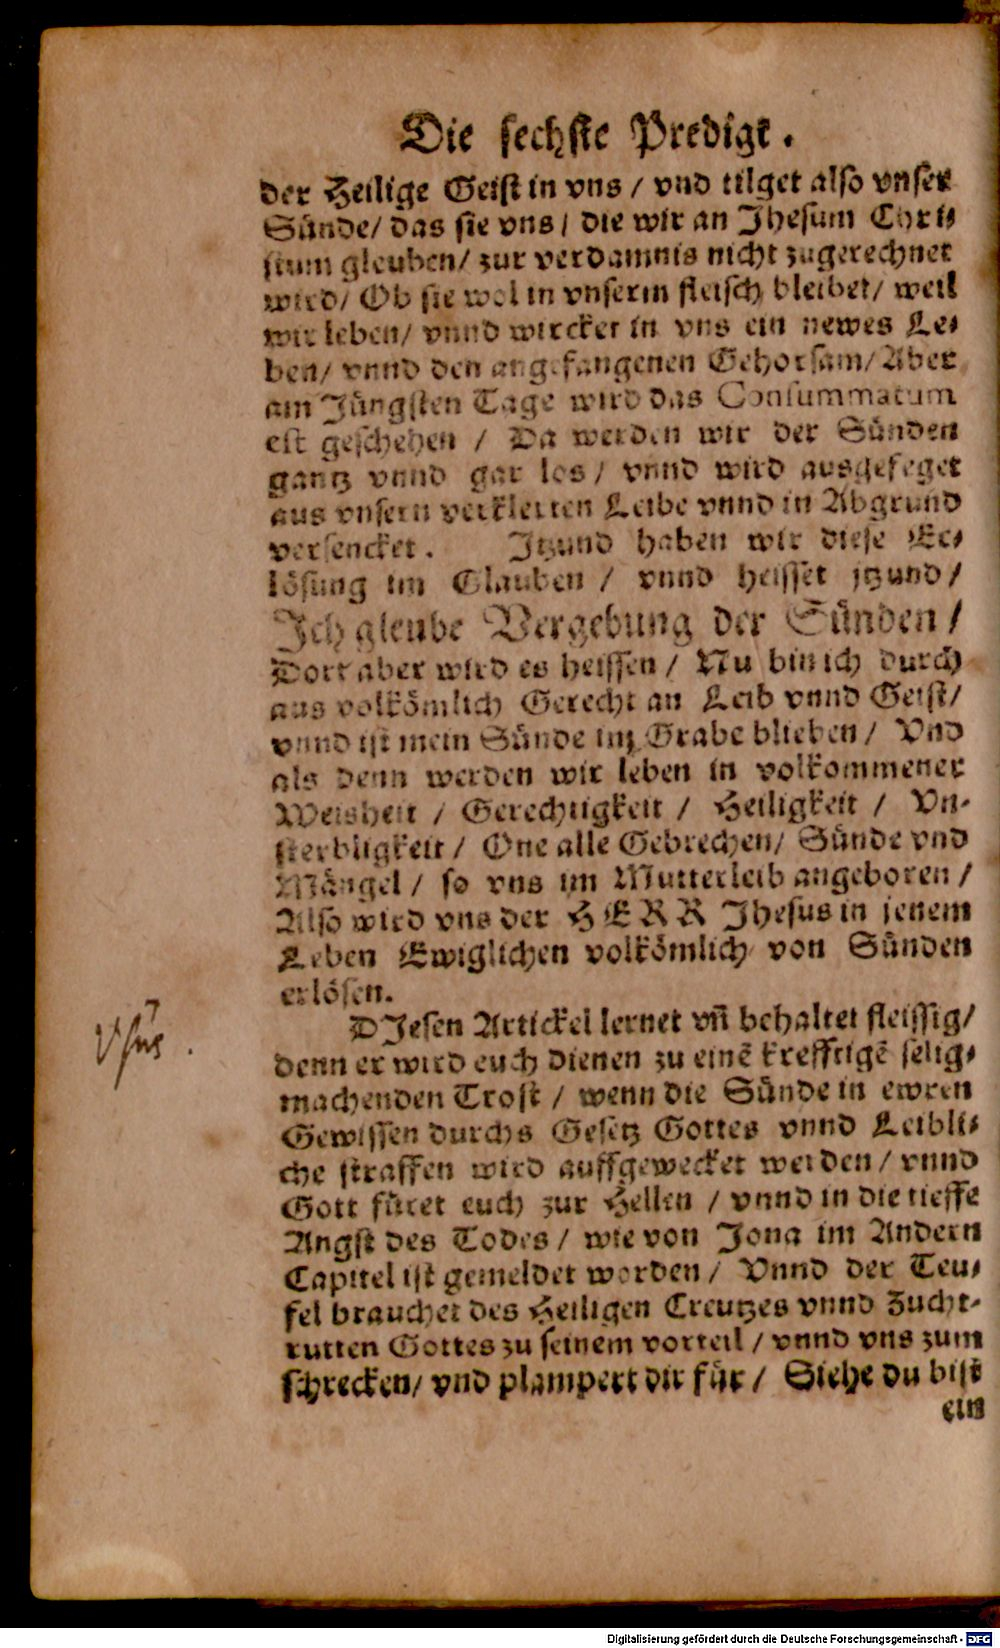 Die sechste Predigt.
der Heilige Geist in vns / vnd tilget also vnser
Sünde/ das sie vns / die wir an Jhesum Chri-
stum gleuben/ zur verdamnis nicht zugerechnet
wird/ Ob sie wol in vnserm fleisch bleibet/ weil
wir leben/ vnnd wircket in vns ein newes Le-
ben/ vnnd den angefangenen Gehorsam/ Aber
am Jüngsten Tage wird das Consummatum
est geschehen / Da werden wir der Sünden
gantz vnnd gar los / vnnd wird ausgefeget
aus vnsern verklerten Leibe vnnd in Abgrund
versencket. Jtzund haben wir diese Er-
lösung im Glauben / vnnd heisset jtzund/
Jch gleube Vergebung der Sünden /
Dort aber wird es heissen / Nu bin ich durch
aus volkömlich Gerecht an Leib vnnd Geist/
vnnd ist mein Sünde im Grabe blieben / Vnd
als denn werden wir leben in volkommener
Weisheit / Gerechtigkeit / Heiligkeit / Vn-
sterbligkeit / One alle Gebrechen/ Sünde vnd
Mängel / so vns im Mutterleib angeboren /
Also wird vns der HERR Jhesus in jenem
Leben Ewiglichen volkömlich von Sünden
erlösen.
DJesen Artickel lernet vn̄ behaltet fleissig/
denn er wird euch dienen zu einē krefftigē selig-
machenden Trost / wenn die Sünde in ewren
Gewissen durchs Gesetz Gottes vnnd Leibli-
che straffen wird auffgewecket werden / vnnd
Gott füret euch zur Hellen / vnnd in die tieffe
Angst des Todes / wie von Jona im Andern
Capitel ist gemeldet worden / Vnnd der Teu-
fel brauchet des Heiligen Creutzes vnnd Zucht-
rutten Gottes zu seinem vorteil / vnnd vns zum
schrecken/ vnd plampert dir für / Siehe du bist
ein
Vsus.
Digitalisierung gefördert durch die Deutsche Forschungsgemeinschaft - DFG